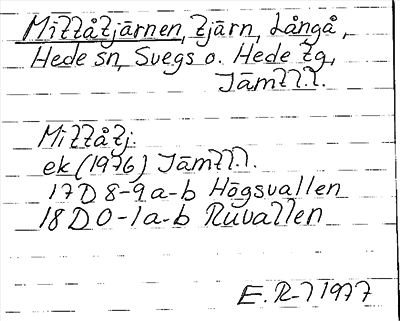 Mittåtjärnen, tjärn, Långå,
Hede sn, Svegs o. Hede tg,
Jämtl.l.
Mittåtj.
ek (1976) Jämtl.l.
17D 8-9 a-b Högsvallen
18D 0-1 a-b Ruvallen
E. R-7 1977